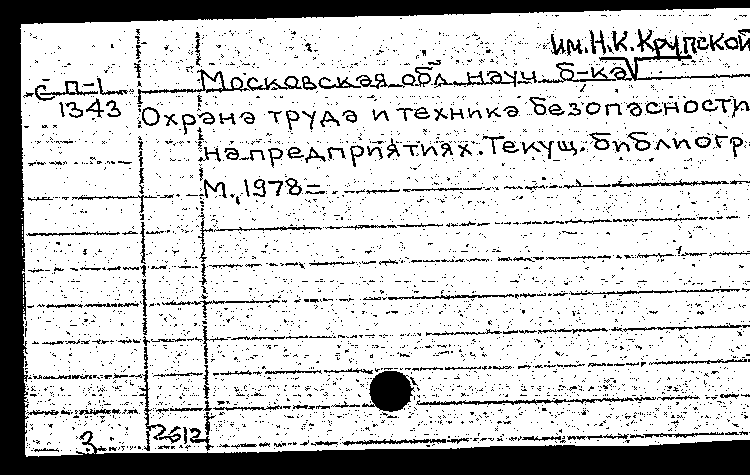 им. Н.К. Крупской
Московская обл. науч. б-ка
С П-1
1343
Охрана труда и техника безопасности
на предприятиях. Текущ. библиогр.
М., 1978-
3 2612